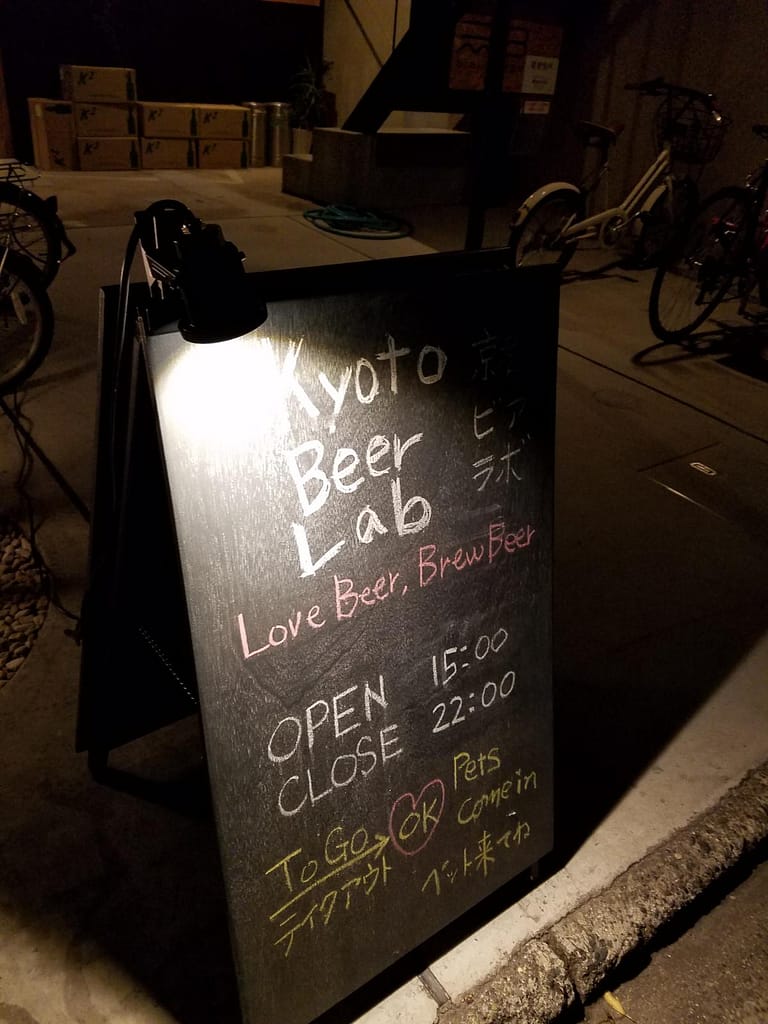 Kyoto
Beer
Lab
京都
ビア
ラボ
Love Beer, Brew Beer
OPEN 15:00
CLOSE 22:00
To Go → OK
テイクアウト
Pets
Come in
ペット来てね
K²
K²
K²
K²
K²
K²